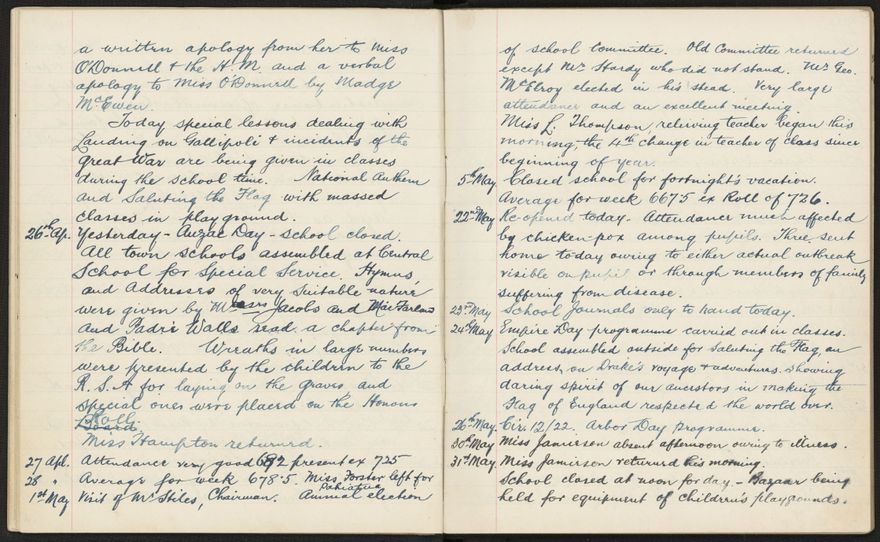 a written apology from her to Miss
O'Donnell & the H.M. and a verbal
apology to Miss O'Donnell by Madge
McEwen.
Today special lessons dealing with
Landing on Gallipoli & incidents of the
Great War are being given in classes
during the school time. National Anthem
and Saluting the Flag with massed
classes in playground.
26th Ap. Yesterday - Anzac Day - school closed.
All town schools assembled at Central
School for Special Service. Hymns
and Addresses of very suitable nature
were given by Messrs Jacobs and MacFarlane
and Padre Walls read a chapter from
the Bible. Wreaths in large numbers
were presented by the children to the
R.S.A for laying on the graves and
special ones were placed on the Honours
Roll
Board.
Miss Hampton returned.
27 Apl. Attendance very good 682 present ex 725
28 " Average for week 678.5. Miss Forster left for
Pahiatua
1st May Visit of Mr Stiles, Chairman. Annual election
of School Committee. Old Committee returned
except Mr Hardy who did not stand. Mr Geo.
McElroy elected in his stead. Very large
attendance and an excellent meeting.
Miss L. Thompson, relieving teacher began this
morning, the 4th change in teacher of class since
beginning of year.
5th May Closed school for fortnight's vacation.
Average for week 667.5 ex Roll of 726.
22nd May Re-opened today. Attendance much affected
by chicken-pox among pupils. Three sent
home today owing to either actual outbreak
visible on pupil or through members of family
suffering from disease.
23rd May School Journals only to hand today.
24th May Empire Day programme carried out in classes.
School assembled outside for saluting the Flag, an
address, on Drake's voyage & adventures, showing
daring spirit of our ancestors in making the
Flag of England respected the world over.
26th May. Cir. 12/22. Arbor Day programme.
30th May Miss Jamieson absent afternoon owing to illness.
31st May. Miss Jamieson returned this morning.
School closed at noon for day. - Bazaar being
held for equipment of children's playgrounds.